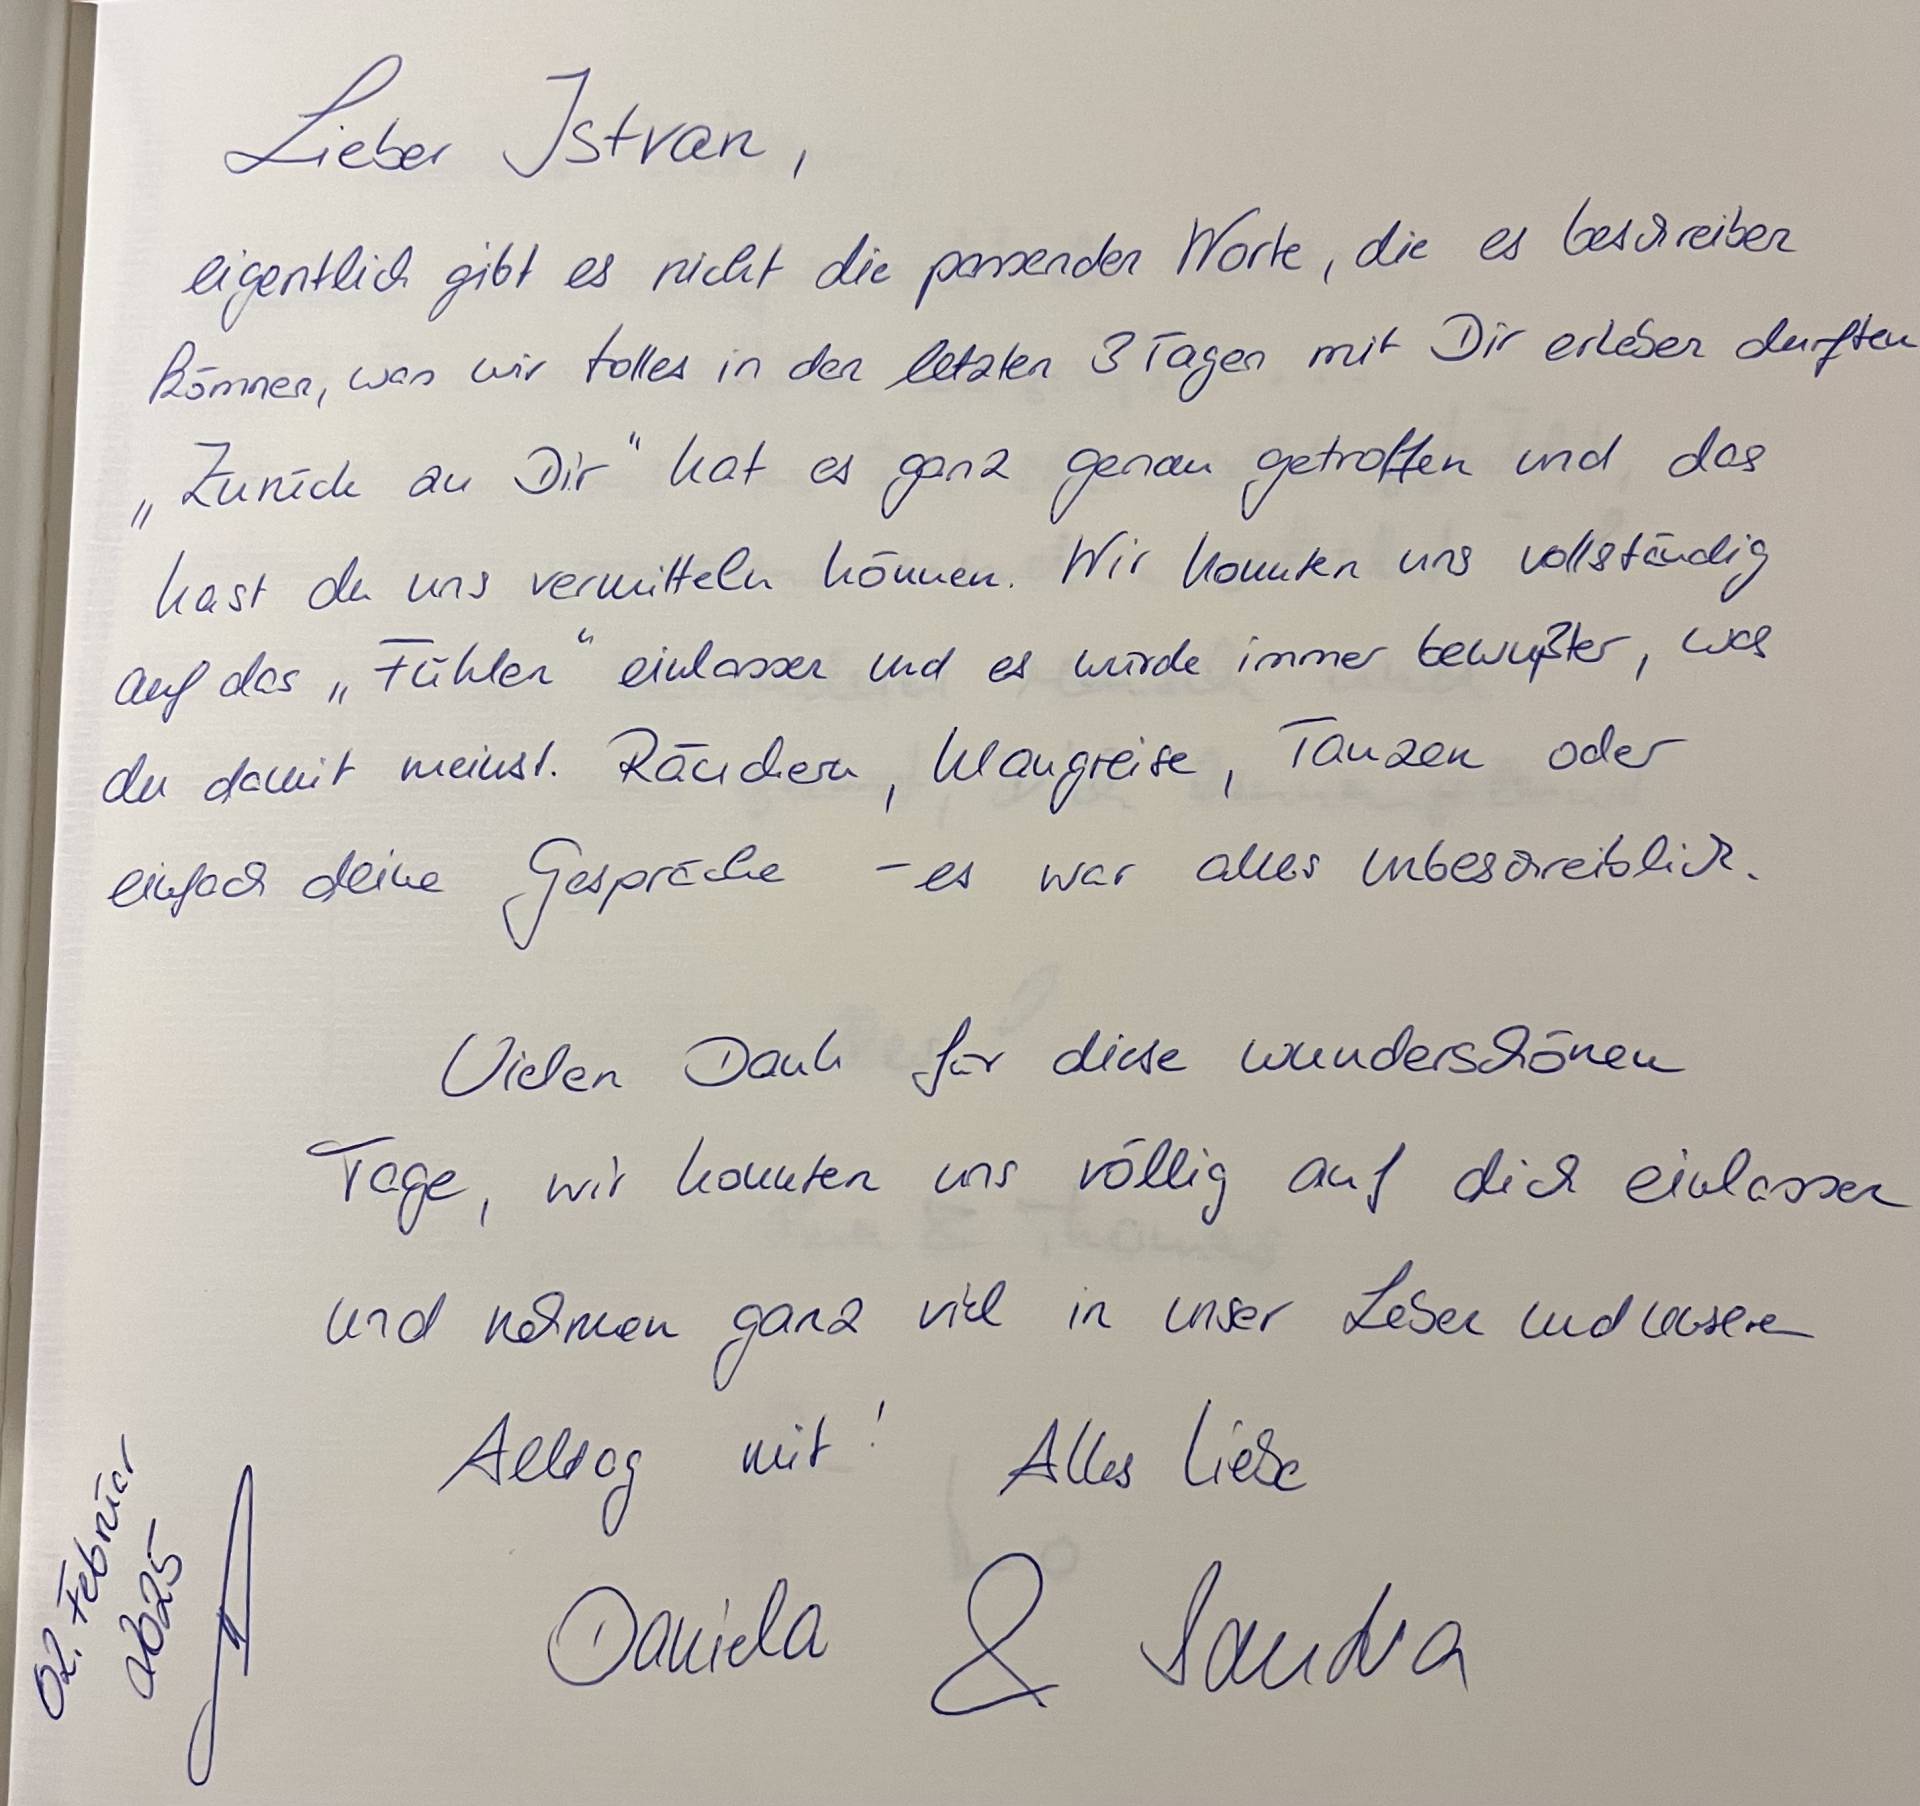 Lieber Istvan,
eigentlich gibt es nicht die passenden Worte, die es beschreiben
können, was wir tolles in den letzten 3 Tagen mit Dir erleben durften
„Zurück zu Dir“ hat es ganz genau getroffen und das
hast du uns vermitteln können. Wir konnten uns vollständig
auf das „Fühlen“ einlassen und es wurde immer bewußter, was
du damit meinst. Räuchern, Klangreise, Tanzen oder
einfach deine Gespräche - es war alles unbeschreiblich.
Vielen Dank für diese wunderschönen
Tage, wir konnten uns völlig auf dich einlassen
und nehmen ganz viel in unser Leben und unseren
Alltag mit! Alles Liebe
Daniela & Sandra
02. Februar
2025